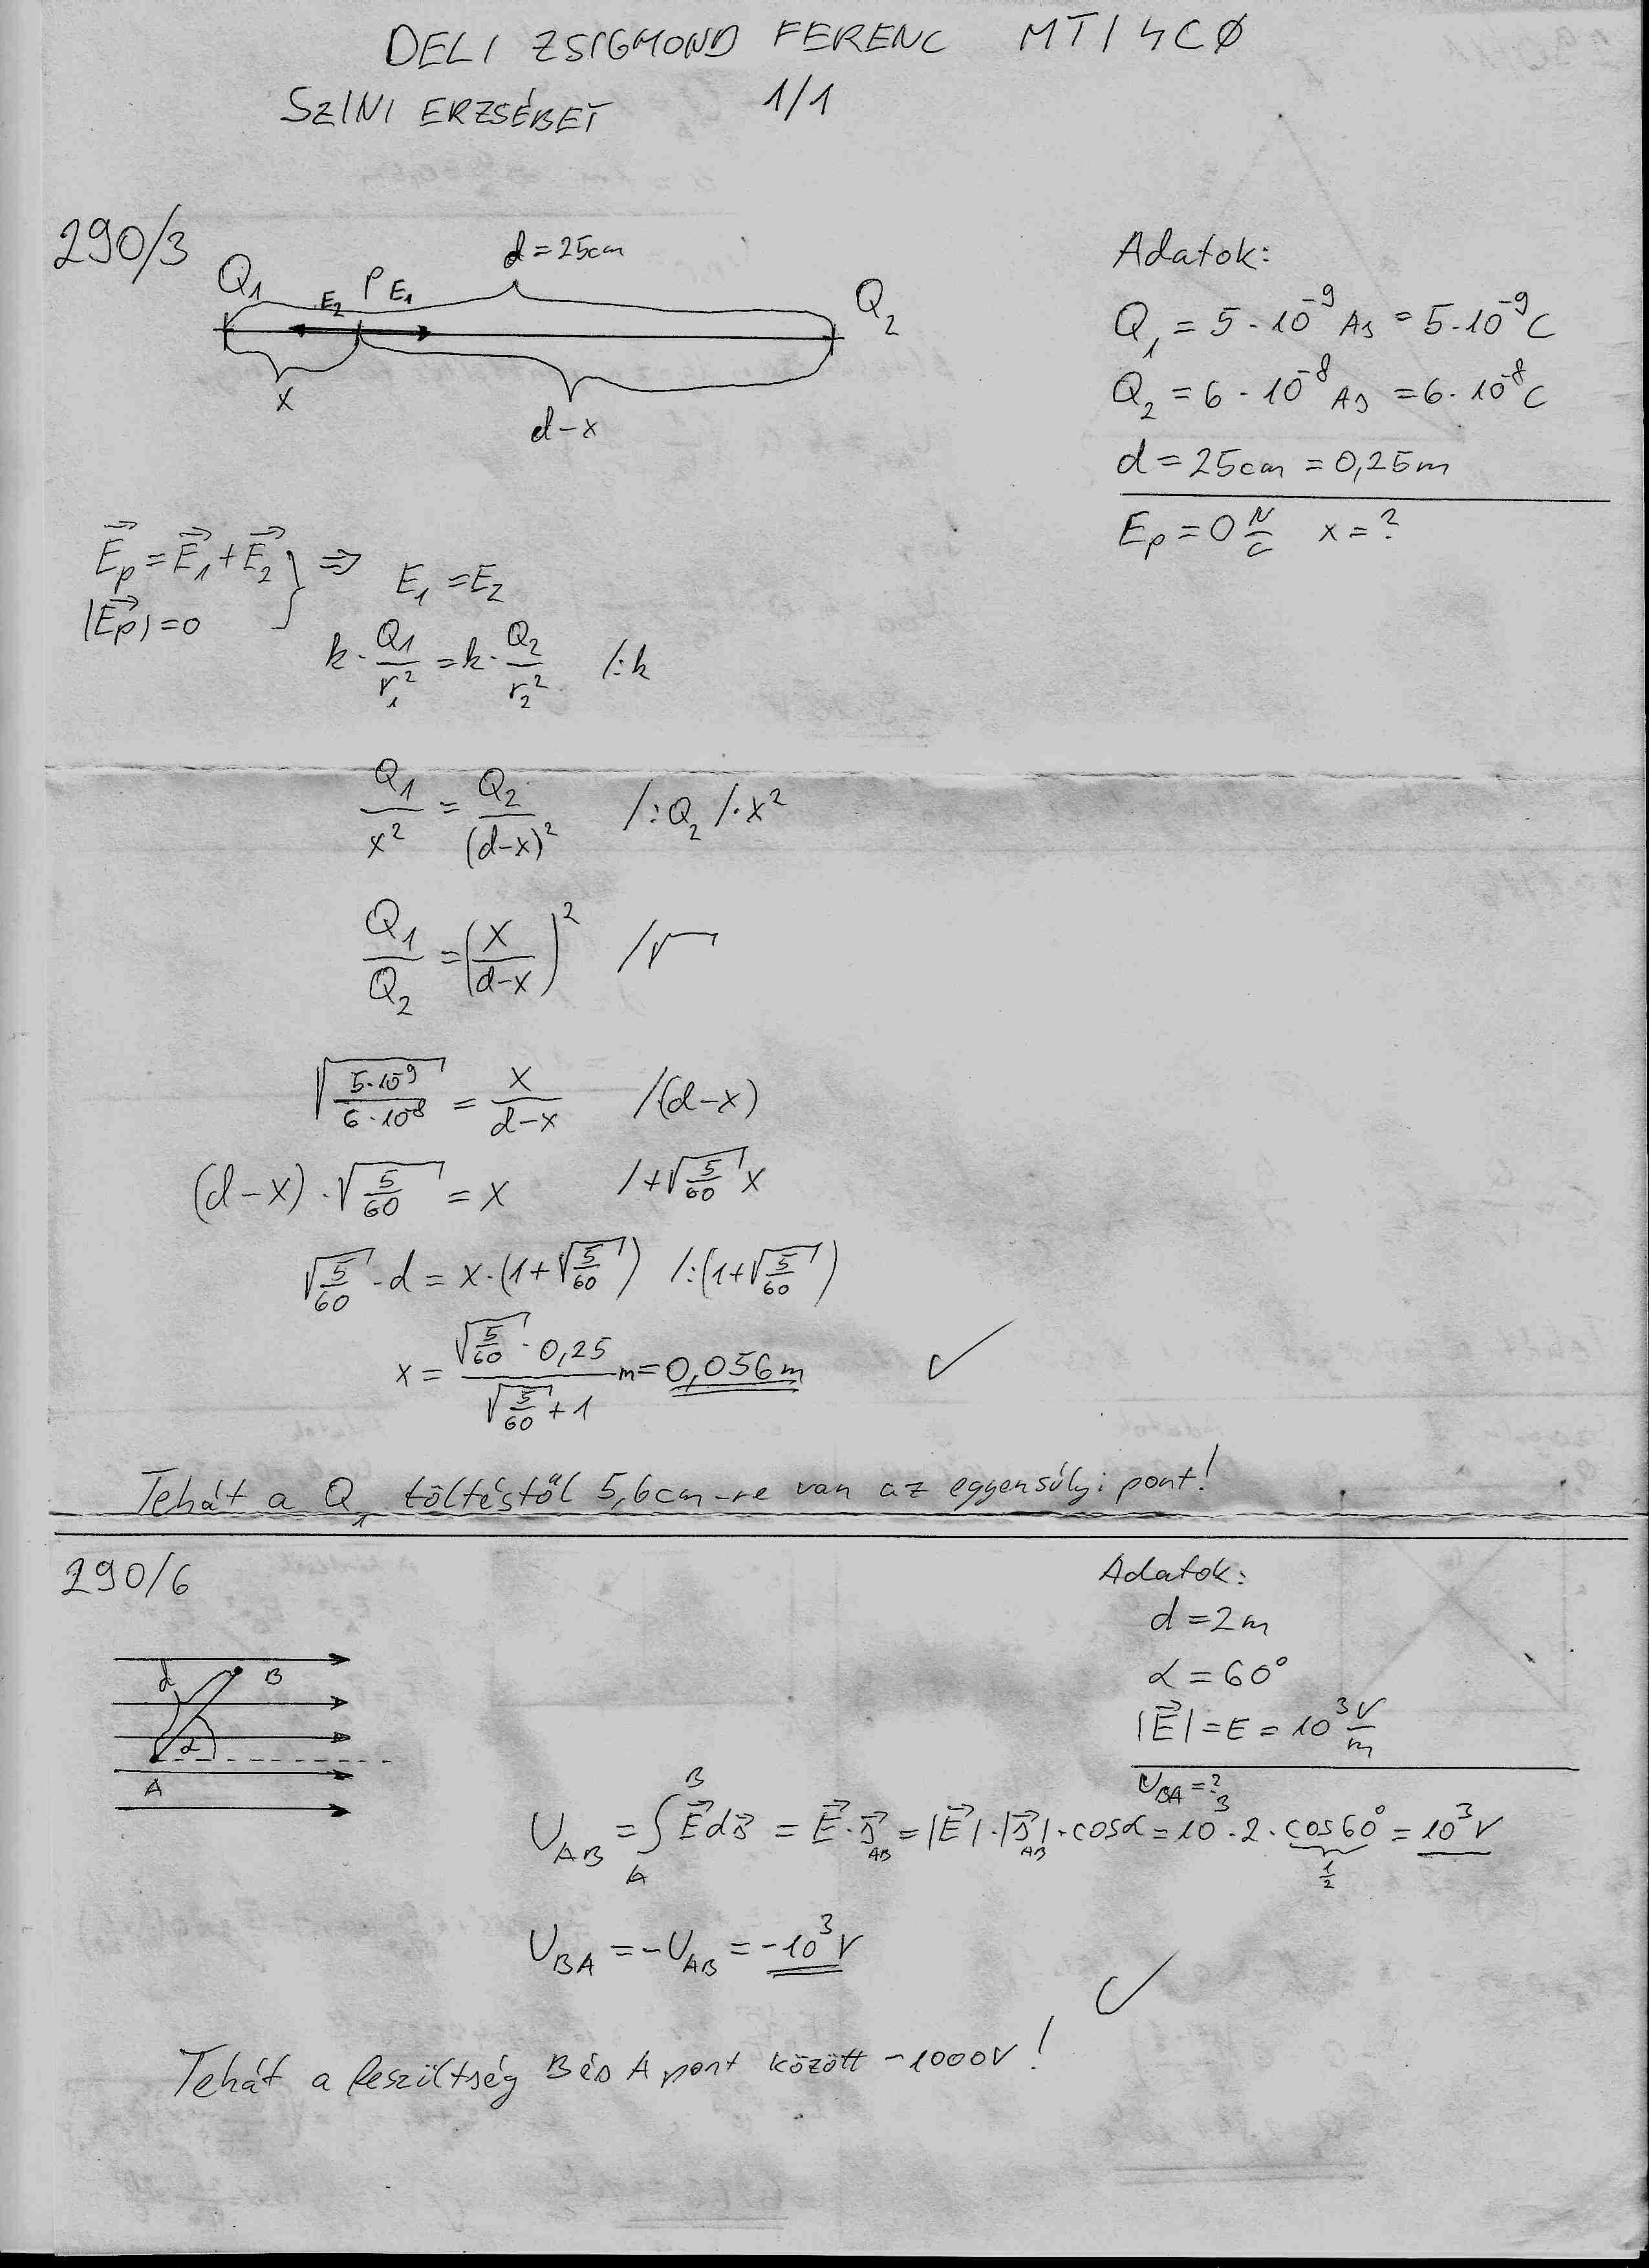 DELI ZSIGMOND FERENC MTI4CØ
SZINI ERZSÉBET 1/1
290/3
d = 25cm
Q₁ E₂ P E₁ Q₂
x
d-x
Adatok:
Q₁ = 5·10⁻⁹ As = 5·10⁻⁹ C
Q₂ = 6·10⁻⁸ As = 6·10⁻⁸ C
d = 25cm = 0,25m
E_p = 0 N/C x = ?
E⃗_p = E⃗₁ + E⃗₂ } ⇒ E₁ = E₂
|E⃗_p| = 0
k · Q₁/r₁² = k · Q₂/r₂² /:k
Q₁/x² = Q₂/(d-x)² /:Q₂ /·x²
Q₁/Q₂ = (x/(d-x))² /√
√(5·10⁻⁹/6·10⁻⁸) = x/(d-x) /(d-x)
(d-x) · √(5/60) = x /+√(5/60) x
√(5/60) · d = x·(1+√(5/60)) /:(1+√(5/60))
x = (√(5/60) · 0,25)/(√(5/60) + 1) m = 0,056m ✓
Tehát a Q₁ töltéstől 5,6cm-re van az egyensúlyi pont!
290/6
d B
α
A
Adatok:
d = 2m
α = 60°
|E⃗| = E = 10³ V/m
U_BA = ?
U_AB = ∫_A^B E⃗ds⃗ = E⃗·s⃗_AB = |E⃗|·|s⃗_AB|·cosα = 10³·2·cos60° = 10³V
1/2
U_BA = -U_AB = -10³V ✓
Tehát a feszültség B és A pont között -1000V!